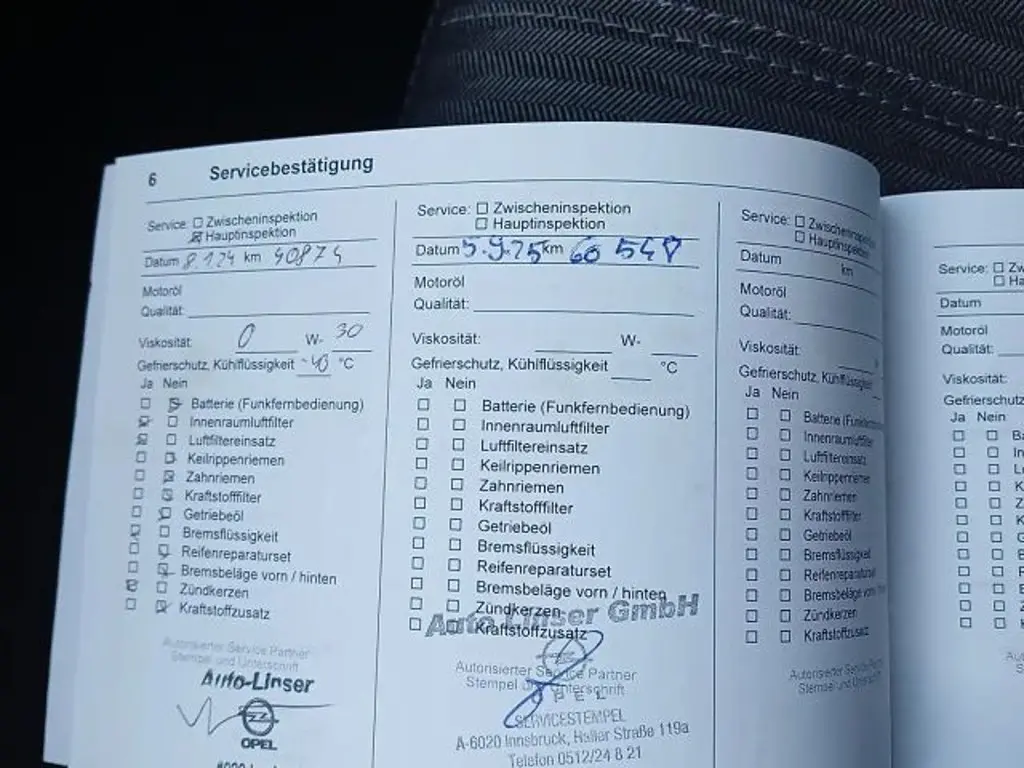 6 Servicebestätigung
Service: Zwischeninspektion
Hauptinspektion
Datum 8.1.24 km 40874
Motoröl
Qualität:
Viskosität: 0 W- 30
Gefrierschutz, Kühlflüssigkeit -40 °C
Ja Nein
Batterie (Funkfernbedienung)
Innenraumluftfilter
Luftfiltereinsatz
Keilrippenriemen
Zahnriemen
Kraftstofffilter
Getriebeöl
Bremsflüssigkeit
Reifenreparaturset
Bremsbeläge vorn / hinten
Zündkerzen
Kraftstoffzusatz
Autorisierter Service Partner
Stempel und Unterschrift
Auto-Linser
OPEL
Service: Zwischeninspektion
Hauptinspektion
Datum 5.9.25 km 60 547
Motoröl
Qualität:
Viskosität: W-
Gefrierschutz, Kühlflüssigkeit °C
Ja Nein
Batterie (Funkfernbedienung)
Innenraumluftfilter
Luftfiltereinsatz
Keilrippenriemen
Zahnriemen
Kraftstofffilter
Getriebeöl
Bremsflüssigkeit
Reifenreparaturset
Bremsbeläge vorn / hinten
Zündkerzen
Kraftstoffzusatz
Auto Linser GmbH
Autorisierter Service Partner
Stempel und Unterschrift
OPEL
SERVICESTEMPEL
A-6020 Innsbruck, Haller Straße 119a
Telefon 0512/24 8 21
Service: Zwischeninspektion
Hauptinspektion
Datum km
Motoröl
Qualität:
Viskosität:
Gefrierschutz, Kühlflüssigkeit
Ja Nein
Batterie (Funkfernb
Innenraumluftfilter
Luftfiltereinsatz
Keilrippenriemen
Zahnriemen
Kraftstofffilter
Getriebeöl
Bremsflüssigkeit
Reifenreparaturset
Bremsbeläge vorn
Zündkerzen
Kraftstoffzusatz
Autorisierter Service Pa
Stempel und Unterschrif
Service: Zw
Ha
Datum
Motoröl
Qualität:
Viskosität:
Gefrierschutz
Ja Nein